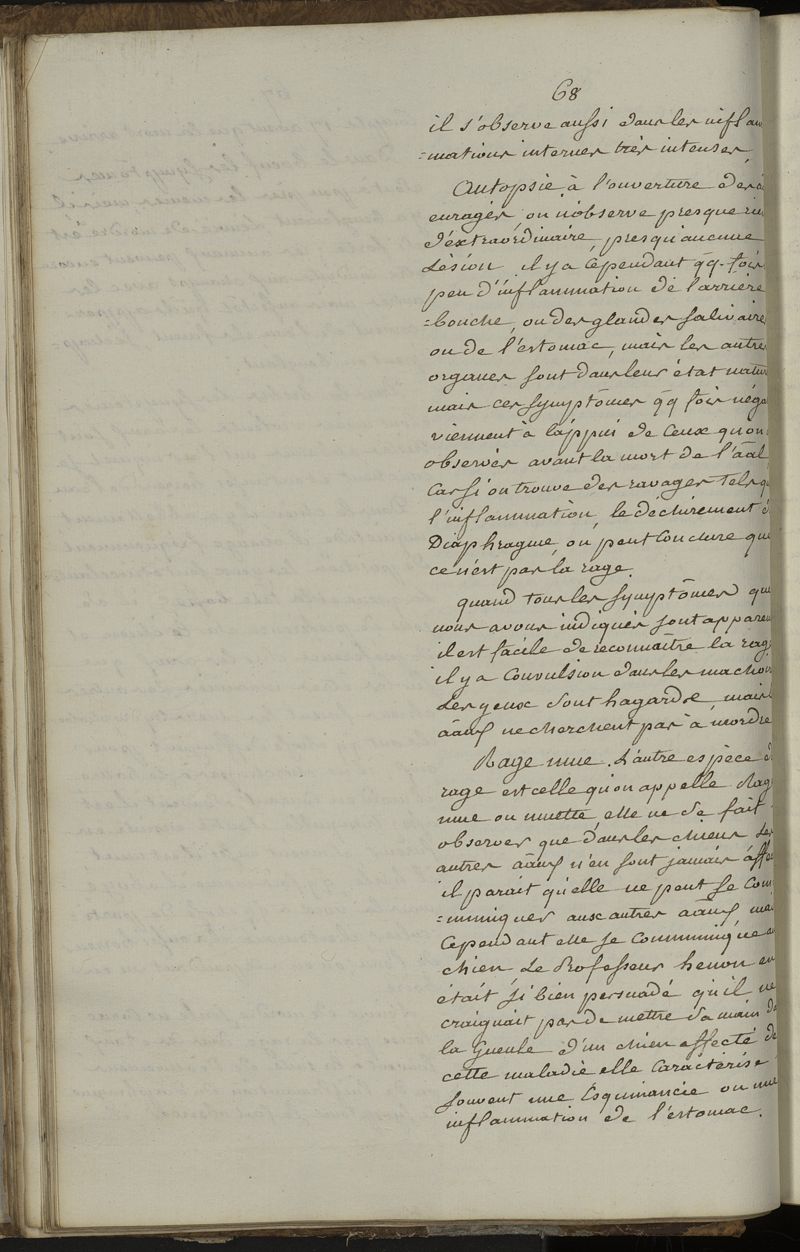 68
il s'observe aussi dans les inflam
=mations internes très intenses,
Autopsie, à l'ouverture des
enragés, on n'observe presque rien
d'éxtraordinaire, presqu'aucune
Lésion, il y a cépendant qq. fois
peu d'inflammation de l'arrière
=bouche, ou des glandes salivaires
ou de l'estomac, mais les autres
organes sont dans leur état natur
mais ces symptômes qq fois néga
viennent à láppui de ceux qu'on
observés avant la mort de l'aâl,
Car si on trouve des ravages tels q
l'inflammation, le déchirement d
Diaphragme, on peut conclure que
ce n'est pas la rage.
quand tous les symptômes que
nous avons indiqués sont apparen
il est fácile de reconnaître la rage
il y a Convulsion dans les machoir
Les yeux sont hagards, mais l
aâux ne cherchent pas à mordre
Rage mue. L'autre espèce d
rage est celle qu'on appelle Rage
mue ou muette, elle ne se fait
observer que dans les chiens Les
autres aâux n'en sont jamais áffec
il parait qu'elle ne peut se Com
=muniquer aux autres aâux, mai
Cependant elle se Communique au
chien, Le Professeur henon en
était si bien persuadé qu'il ne
craignait pas de mettre sa main da
la Gueule d'un chien affecté de
cette maladie elle Caractérise
souvent une Esquinancie ou une
inflammation de l'estomac.